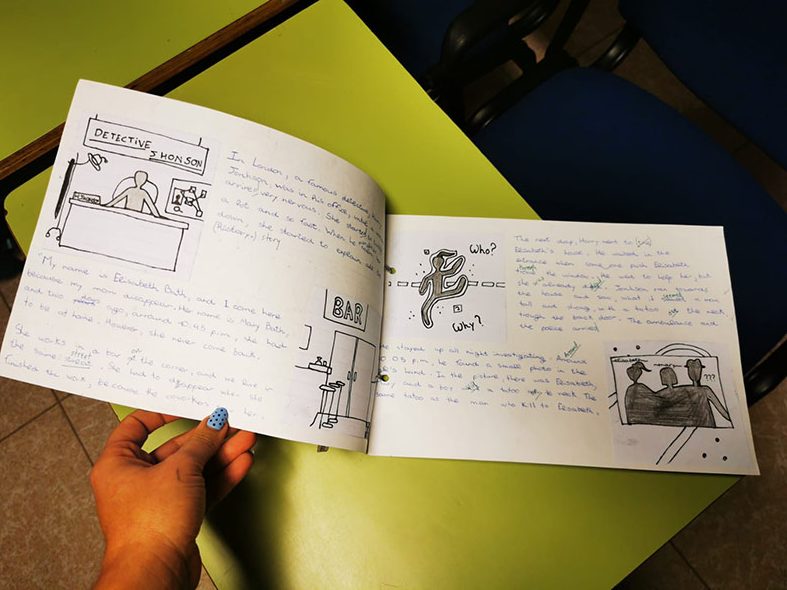 DETECTIVE
JHONSON
In London, a famous detective,
Jonhson, was in his office, when a
arrived very nervous. She started
a lot and so fast. When he
down, she started to explain
story
"My name is Elisabeth Bath, and I came here
because my mom disappear. Her name is Mary Bath,
and two days ago, arround 10:45 p.m, she had
to be at home. However, she never come back.
She works in a bar of the corner, and we live in
the same street. She had to disappear when she
finished the work, because the coworkers her.
BAR
Who?
Why?
He stayed up all night investigating. Around
10:05 p.m, he found a small photo in the
hand. In the picture, there was Elisabeth,
and a boy a tatoo neck. The
same tatoo as the man who kill to Elisabeth.
The next day, Harry went to
Elisabeth's house. He waited in the
entrance when some one push Elisabeth
from the window. He went to help her, but
she already Jonhson ran towards
the house and saw a man
tall and strong, with a tatoo the neck
trough the back door. The ambulance and
the police arrived
Elisabeth
???